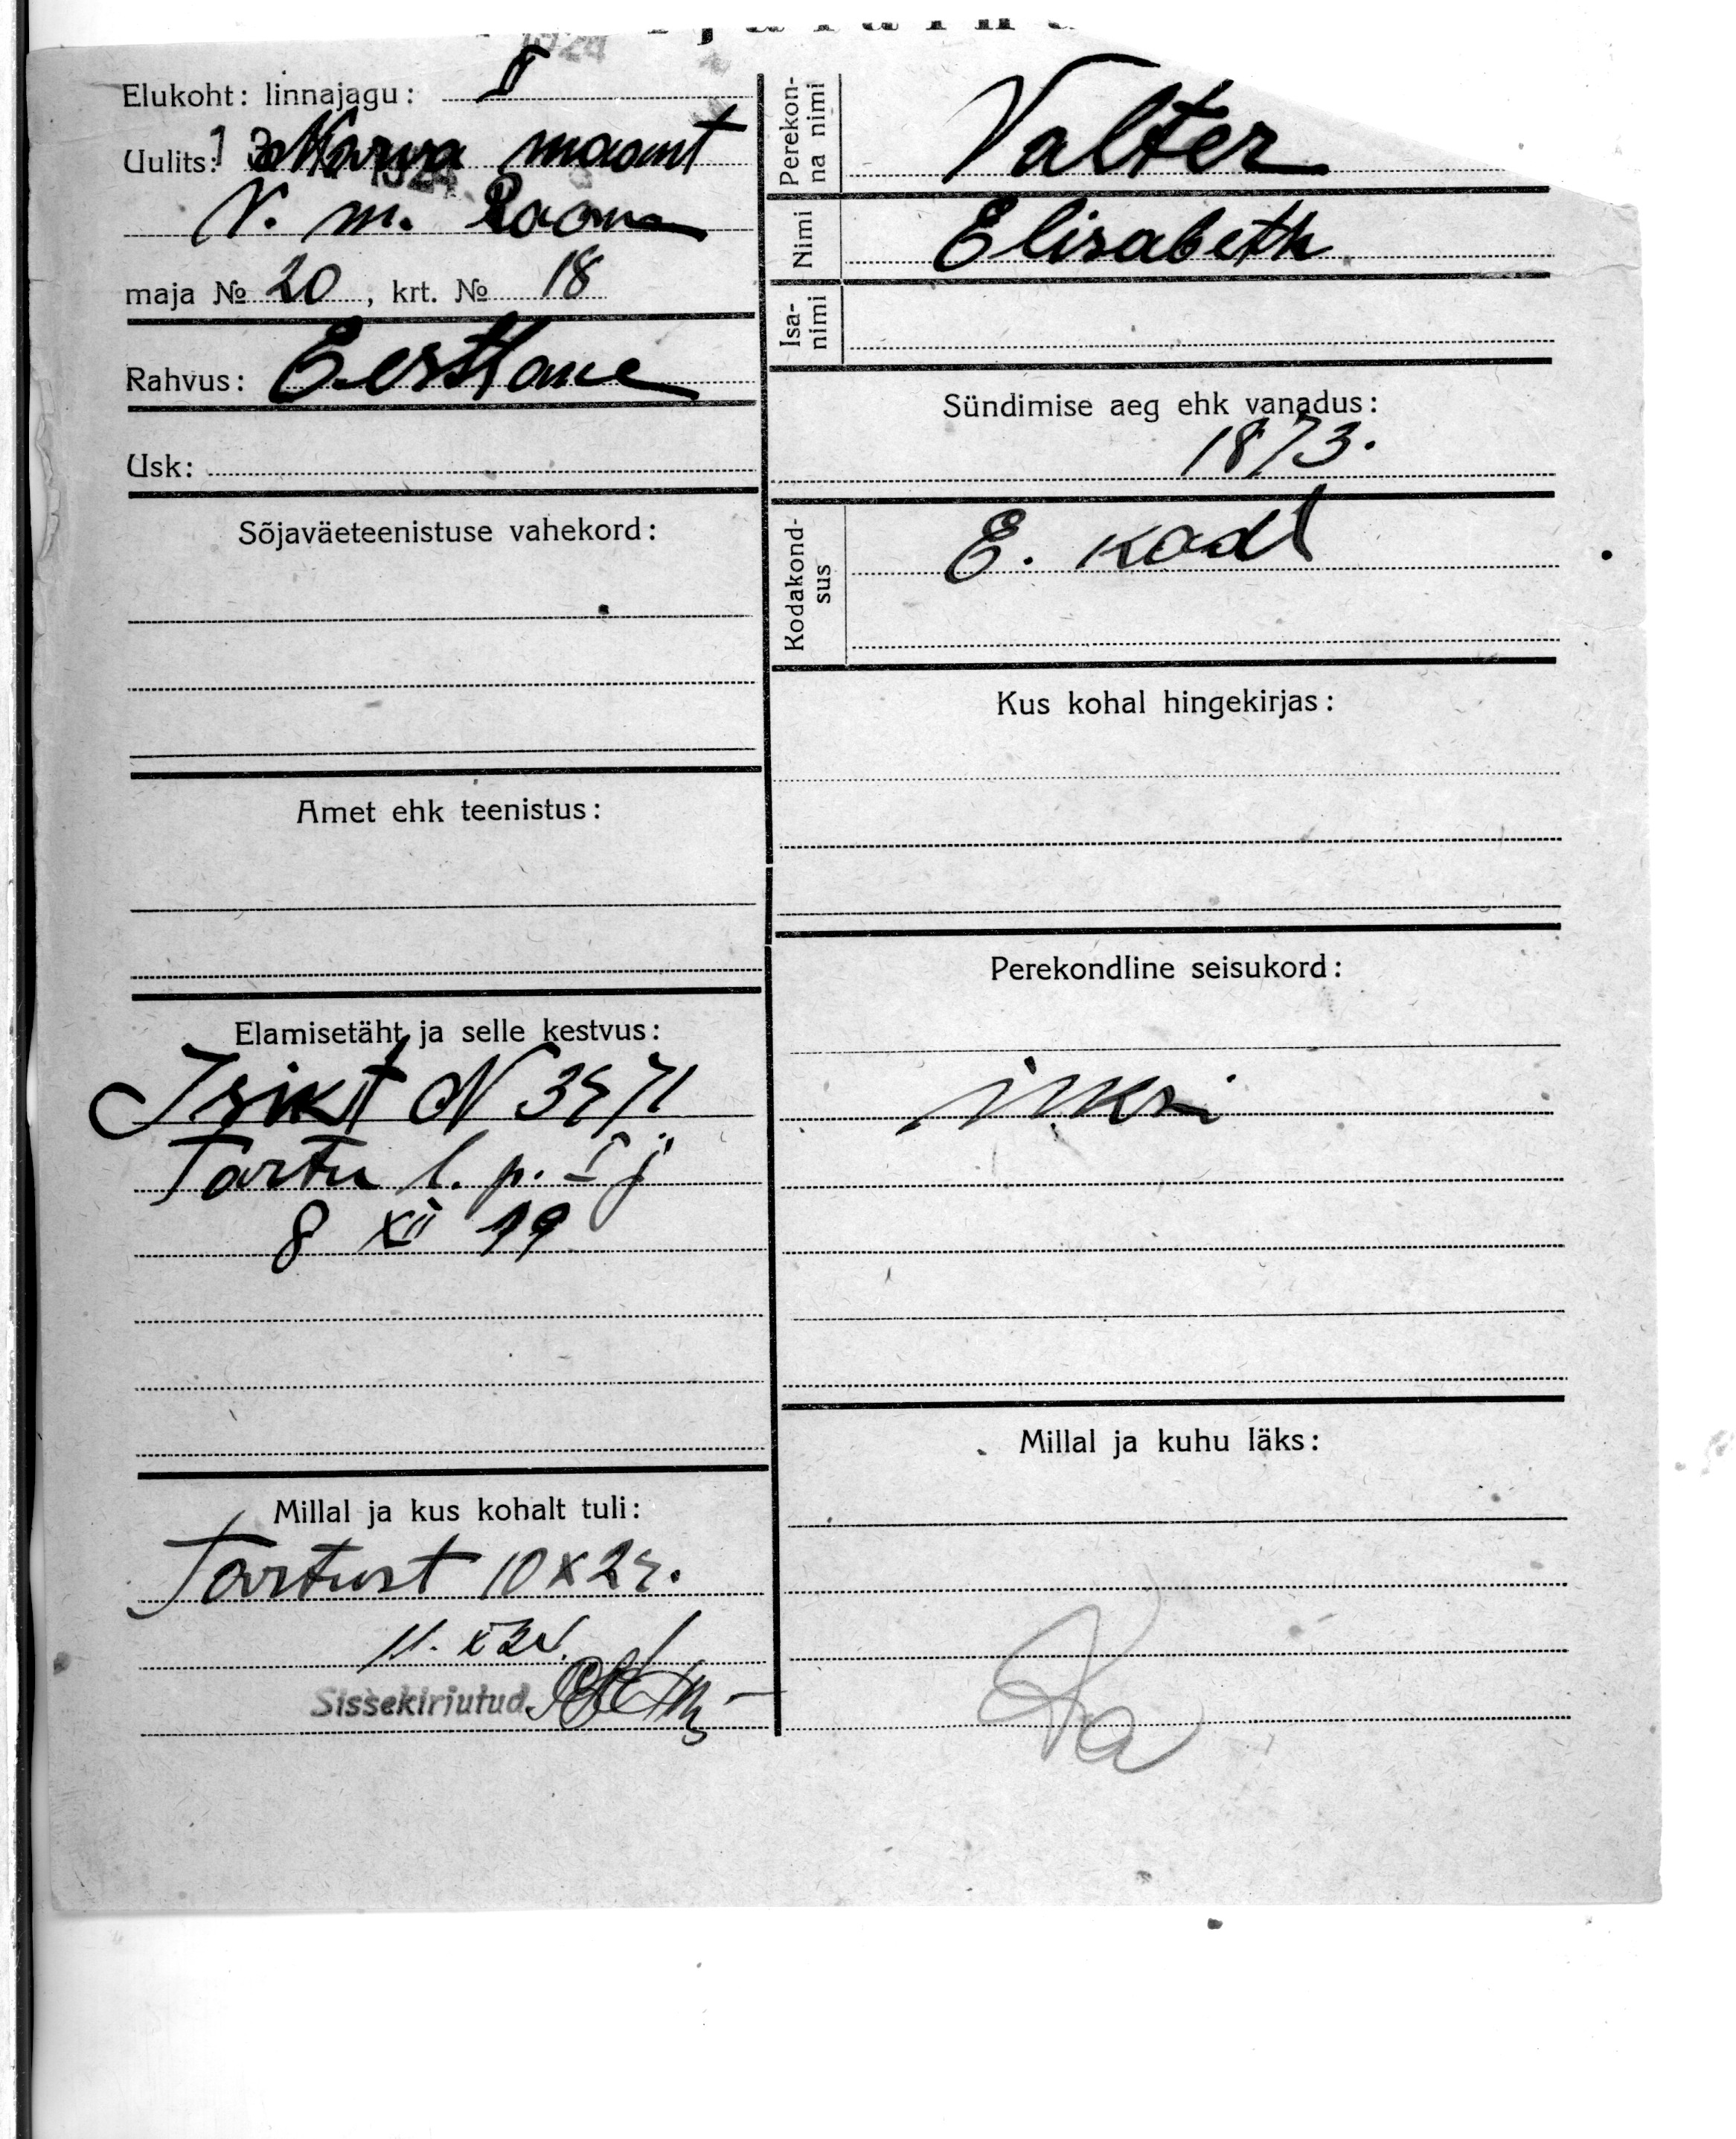 Elukoht: linnajagu: II
Uulits: Narva maant
N. m. Raoma
maja № 20, krt. № 18
Rahvus: Eestlane
Usk:
Sõjaväeteenistuse vahekord:
Amet ehk teenistus:
Elamisetäht ja selle kestvus:
Isikt N 3471
Tartu l. p. I j
8 XII 19
Millal ja kus kohalt tuli:
Tartust 10 X 24.
11. X 24.
Sissekirjutud
Perekon-
na nimi
Valter
Nimi
Elisabeth
Isa-
nimi
Sündimise aeg ehk vanadus:
1873.
Kodakond-
sus
E. kodt
Kus kohal hingekirjas:
Perekondline seisukord:
Millal ja kuhu läks: